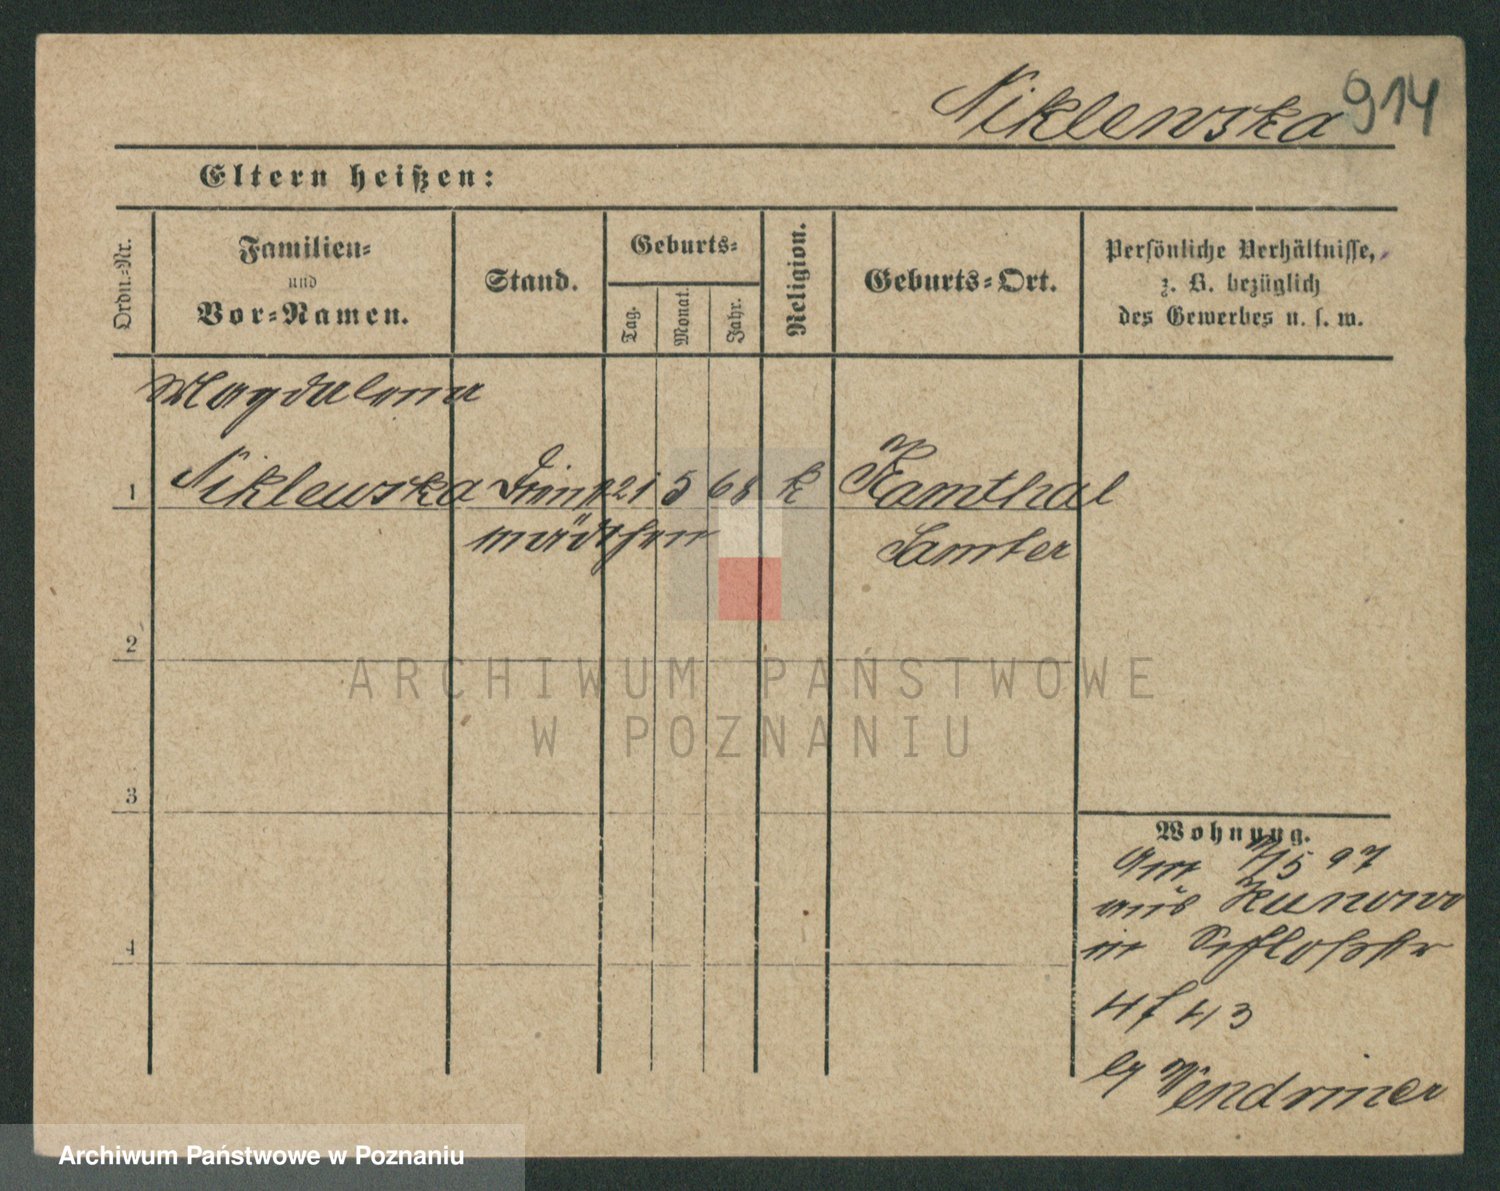 Niklewska 914
Eltern heißen:
Ordn.-Nr.
Familien-
und
Vor-Namen.
Stand.
Geburts-
Tag.
Monat.
Jahr.
Religion.
Geburts-Ort.
Persönliche Verhältnisse,
z. B. bezüglich
des Gewerbes u. s. w.
Magdalena
1 Niklewska Dienst 21 5 68 k Kamthal
mädchen Samter
2
3
4
Wohnung.
Am 5 97
aus Kunowo
in Schloßstr
4 43
Wendriner
ARCHIWUM PAŃSTWOWE
W POZNANIU
Archiwum Państwowe w Poznaniu